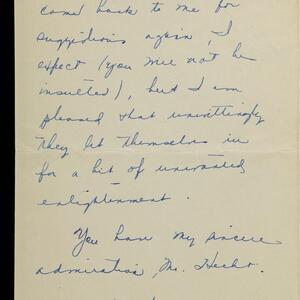 come back to me for
suggestions again, I
expect (you will not be
insulted), but I am
pleased that unwittingly
they let themselves in
for a bit of unwanted
enlightenment.
You have my sincere
admiration, Mr. Hecht.